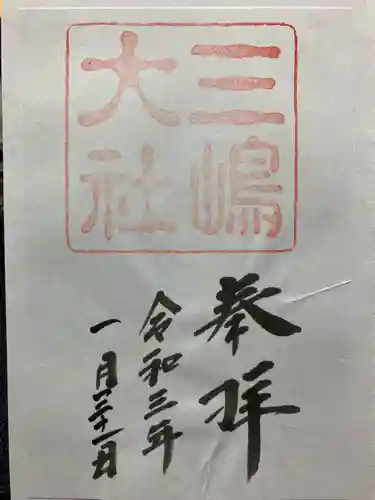 三嶋
大社
奉拝
令和三年
一月二十一日